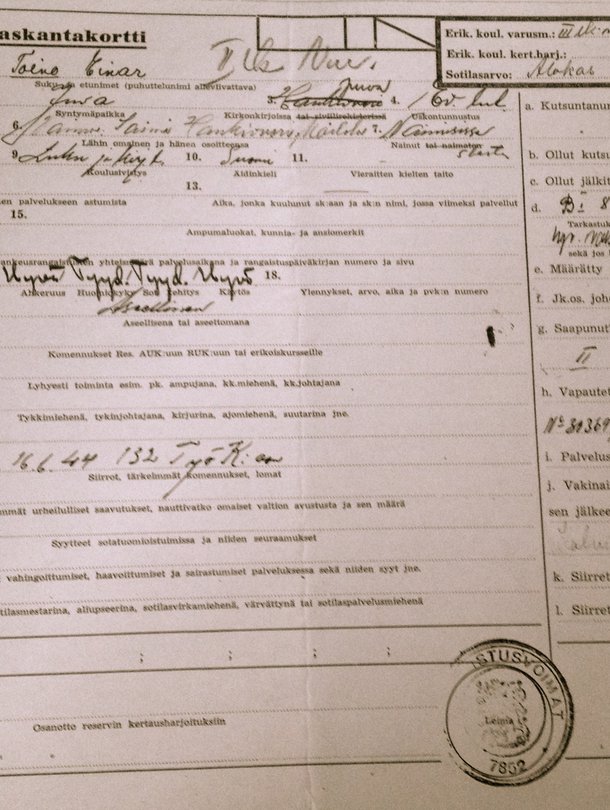 askantakortti
Toivo Einar
II lk. Nuv.
Erik. koul. varusm.: III lk.
Erik. koul. kert.harj.:
Sotilasarvo: Alokas
Suku- ja etunimet (puhuttelunimi alleviivattava)
Juva
3. Juva 4. Ev. lut.
Syntymäpaikka Kirkonkirjoissa tai siviilirekisterissä Uskontunnustus
6. Saima 7.
Lähin omainen ja hänen osoitteensa Nainut tai naimaton
9. Luku ja kirj. t. 10. Suomi 11.
Koulusivistys Äidinkieli Vieraitten kielten taito
13.
en palvelukseen astumista Aika, jonka kuulunut sk:aan ja sk:n nimi, jossa viimeksi palvellut
15.
Ampumaluokat, kunnia- ja ansiomerkit
ankeusrangaistusten yhteismäärä palvelusaika ja rangaistuspäiväkirjan numero ja sivu
Hyvä Tyyd. Tyyd. Hyvä 18.
Ahkeruus Huomiokyky Sot. kehitys Käytös Ylennykset, arvo, aika ja pvk:n numero
Aseellisena tai aseettomana
Komennukset Res. AUK:uun RUK:uun tai erikoiskursseille
Lyhyesti toiminta esim. pk. ampujana, kk.miehenä, kk.johtajana
Tykkimiehenä, tykinjohtajana, kirjurina, ajomiehenä, suutarina jne.
16.6.44 132 Työ K:aan
Siirrot, tärkeimmät komennukset, lomat
mmät urheilulliset saavutukset, nauttivatko omaiset valtion avustusta ja sen määrä
Syytteet sotatuomioistuimissa ja niiden seuraamukset
vahingoittumiset, haavoittumiset ja sairastumiset palveluksessa sekä niiden syyt jne.
tilasmestarina, aliupseerina, sotilasvirkamiehenä, värvättynä tai sotilaspalvelusmiehenä
; ; ; ;
Osanotto reservin kertausharjoituksiin
a. Kutsuntanu
b. Ollut kutsu
c. Ollut jälkit
d. B I 8
Tarkastuk
sekä jos
e. Määrätty
f. Jk.os. joh
g. Saapunut
II
h. Vapautet
No 30369
i. Palvelus
j. Vakinai
sen jälkee
k. Siirret
l. Siirret
STUSVOIMAT
Leima
7852